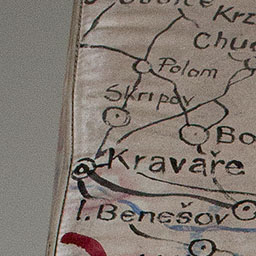 Krz
Chu
Polom
Skripov
Bo
Kravaře
1. Benešov